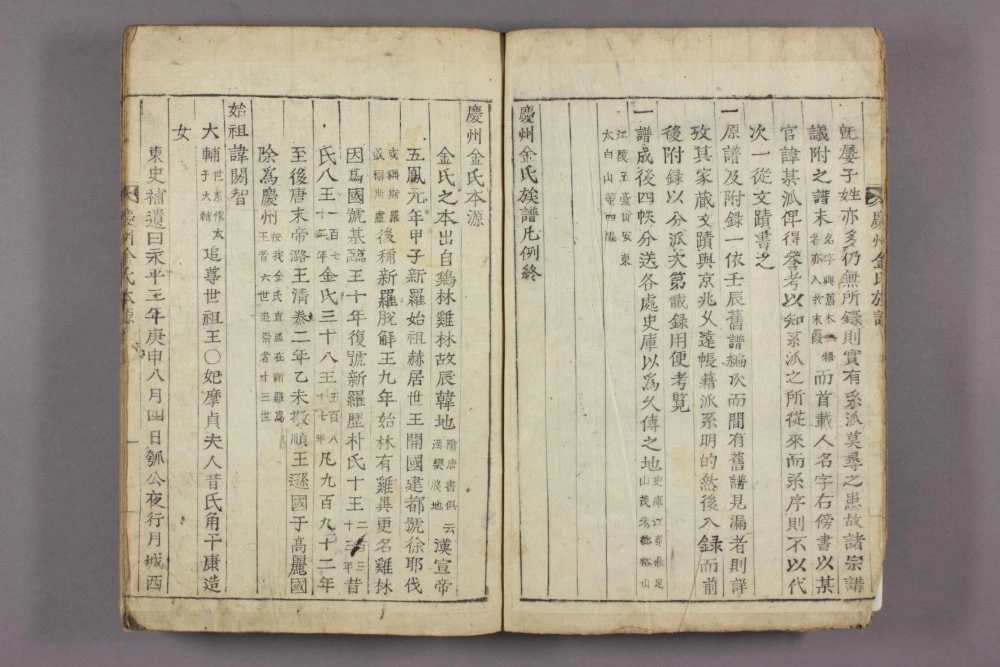 旣屢子姓亦多仍無所錄則實有系派莫尋之患故諸宗講
議附之譜末名字與舊本牾者亦入於末段而首載人名字右傍書以某
官諱某派俾得參考以知系派之所從來而系序則不以代
次一從文蹟書之
一原譜及附錄一依壬辰舊譜編次而間有舊譜見漏者則詳
攷其家藏文蹟與京兆乂遠帳藉派系明的然後入錄而前
後附錄以分派次第載錄用便考覽
一譜成後四帙分送各處史庫以爲久傳之地史庫江赤足山茂朱裕山
江陵五臺山安東太白山等四處
慶州金氏族譜凡例終
慶州金氏族譜
慶州金氏本源
金氏之本出自鷄林雞林故辰韓地隋唐書俱云漢樂浪地漢宣帝
五鳳元年甲子新羅始祖赫居世王開國建都號徐耶伐
或稱斯羅或稱斯盧後稱新羅脫解王九年始林有雞異更名雞林
因爲國號基臨王十年復號新羅歷朴氏十王二百三十二年昔
氏八王一百七十二年金氏三十八王五百八十七年凡九百九十二年
至後唐末帝潞王淸泰二年乙未敬順王遜國于高麗國
除爲慶州按我金氏直派在新羅爲王者六世追崇者卄三世
始祖諱閼智
大輔世系作太子太輔追尊世祖王〇妃摩貞夫人昔氏角干康造
女
東史補遺曰永平三年庚申八月四日瓠公夜行月城西
慶州金氏本源